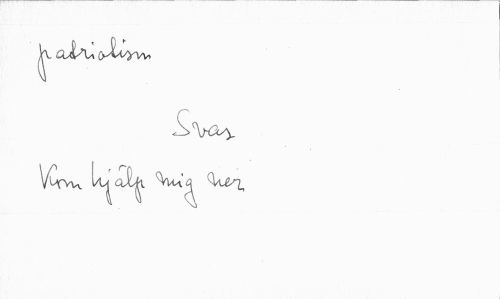 patriotism
Svas
Kom hjälp mig ner